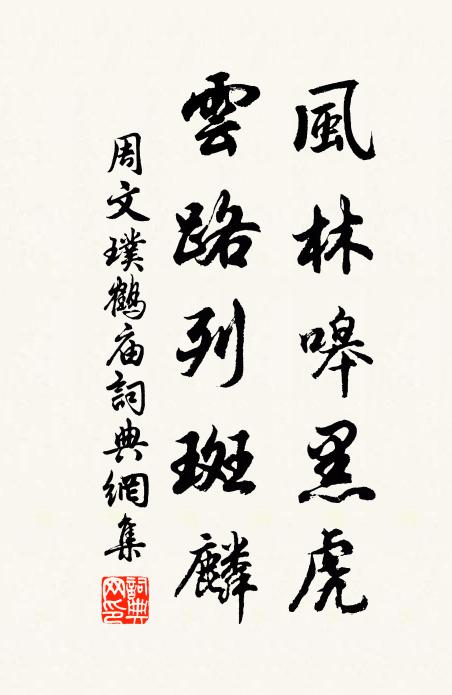 風林嘷黑虎
雲路列斑麟
周文璞鶴庙詞典網集
詞典网印